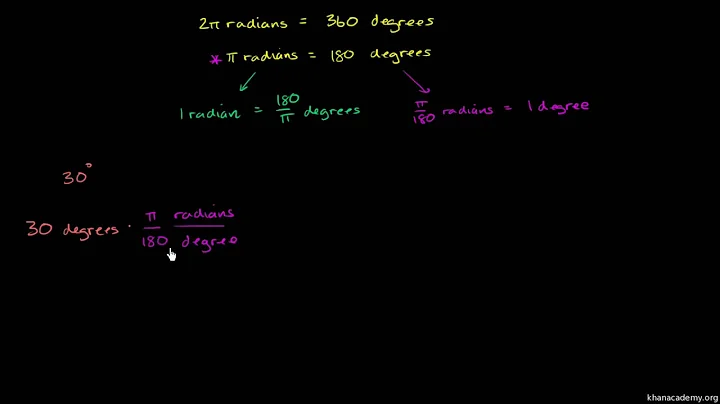 2π radians = 360 degrees
* π radians = 180 degrees
1 radian = 180/π degrees
π/180 radians = 1 degree
30°
30 degrees · π/180 radians/degree
khanacademy.org